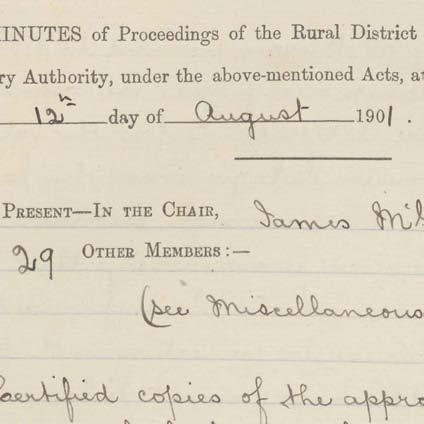 MINUTES of Proceedings of the Rural District
ry Authority, under the above-mentioned Acts, at
12th day of August 1901.
PRESENT—IN THE CHAIR, James
29 OTHER MEMBERS:—
(see Miscellaneous
Certified copies of the appro